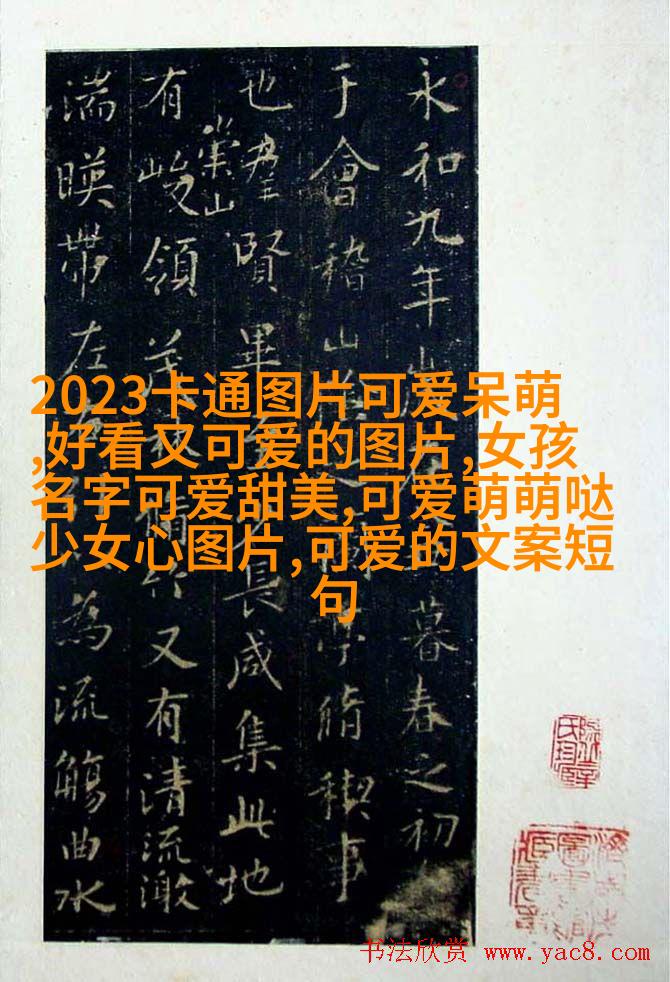 永和九年暮春之初
于會稽山亭脩稧事
也羣賢畢長咸集此地
有崇山峻領茂林又有清流激
湍暎帶左為流觴曲水
2023卡通图片可爱呆萌
,好看又可爱的图片,女孩
名字可爱甜美,可爱萌萌哒
少女心图片,可爱的文案短
句
书法欣赏 www.yac8.com